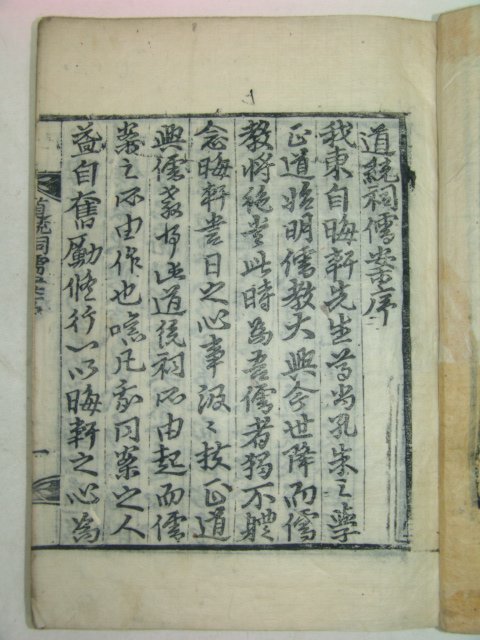 道統祠儒案序
我東自晦軒先生萬尚孔朱之學
正道始明儒教大興今世降而儒
教將絶當此時為吾儒者獨不軆
念晦軒當日之心事汲〻扶正道
興儒教乎此道統祠所由起而儒
案之所由作也噫凡我同案之人
益自奮勵修行一以晦軒之心為
道統祠儒案序
一